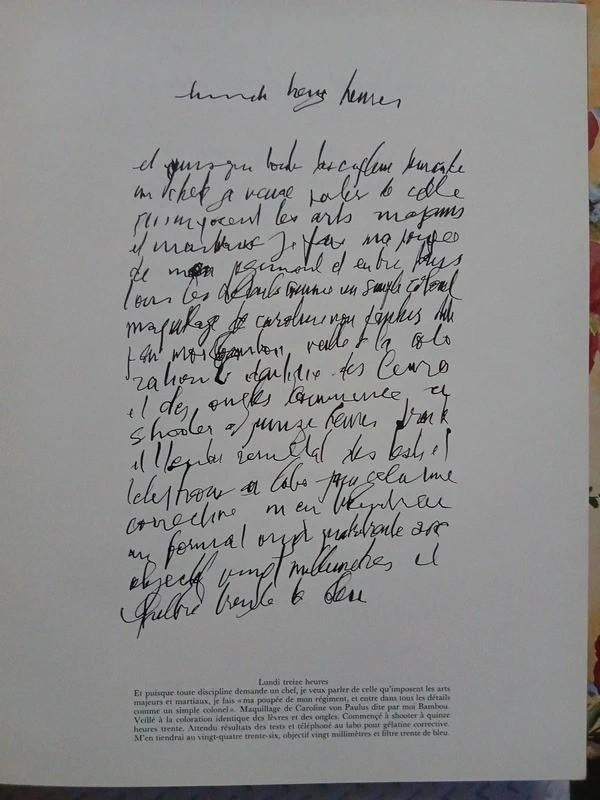 lundi treize heures
et puisque toute discipline demande
un chef je veux parler de celle
qu'imposent les arts majeurs
et martiaux je fais ma poupée
de mon régiment et entre dans
tous les détails comme un simple colonel
maquillage de caroline von paulus dite
par moi bambou veillé à la colo
ration identique des lèvres
et des ongles commencé à
shooter à quinze heures trente
attendu résultat des tests et
téléphoné au labo pour gélatine
corrective m'en tiendrai
au format vingt quatre trente six
objectif vingt millimètres et
filtre trente de bleu
Lundi treize heures
Et puisque toute discipline demande un chef, je veux parler de celle qu'imposent les arts
majeurs et martiaux, je fais « ma poupée de mon régiment, et entre dans tous les détails
comme un simple colonel ». Maquillage de Caroline von Paulus dite par moi Bambou.
Veillé à la coloration identique des lèvres et des ongles. Commencé à shooter à quinze
heures trente. Attendu résultats des tests et téléphoné au labo pour gélatine corrective.
M'en tiendrai au vingt-quatre trente-six, objectif vingt millimètres et filtre trente de bleu.